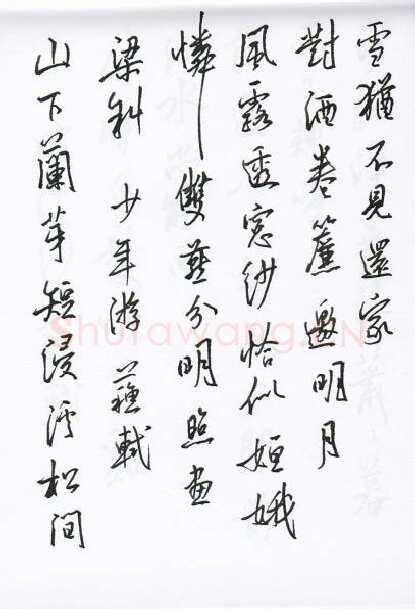 雪猶不見還家
對酒卷簾邀明月
風露透窗紗恰似姮娥
憐雙燕分明照畫
梁斜 少年游 蘇軾
山下蘭芽短浸溪松間
Shufawang.CN